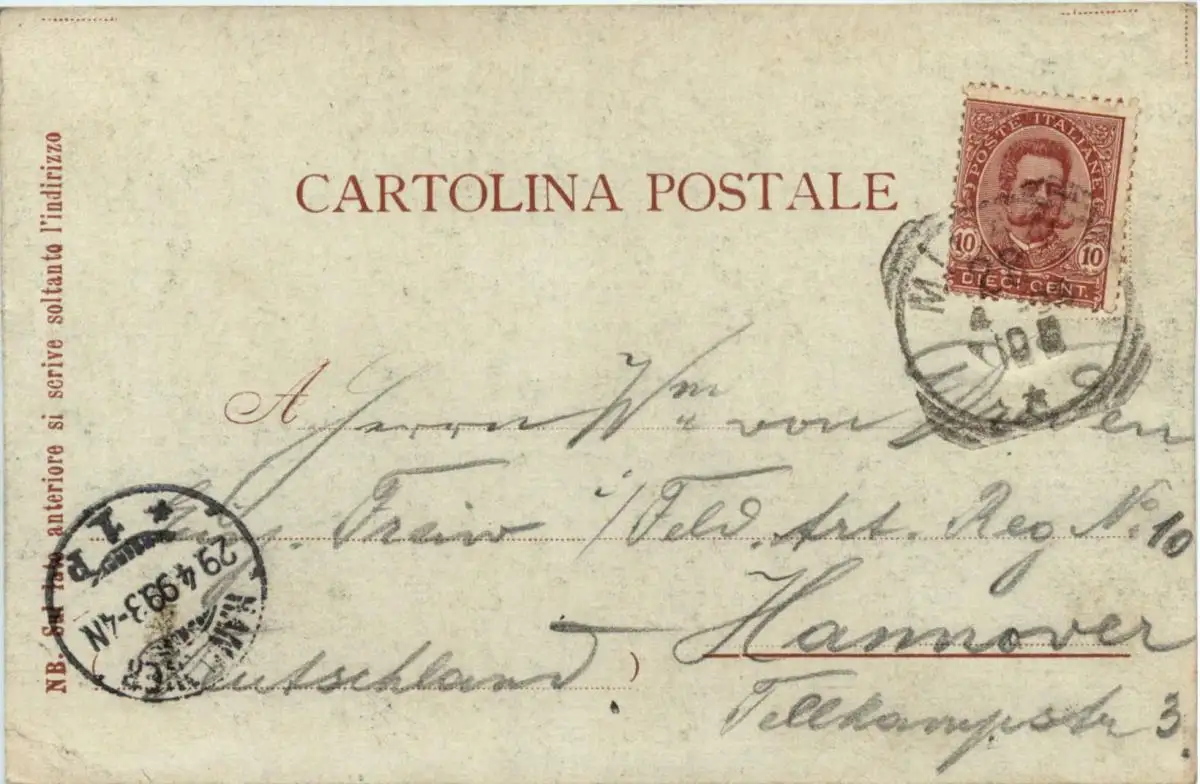 CARTOLINA POSTALE
POSTE ITALIANE
10 10
DIECI CENT.
NB. Sul lato anteriore si scrive soltanto l'indirizzo
A Herrn Wm von
Freiw i/ Feld. Art. Reg No. 10
Hannover
Deutschland )
Tellkampstr 3
HANNOVER
29.4.99.3-4N
1 P